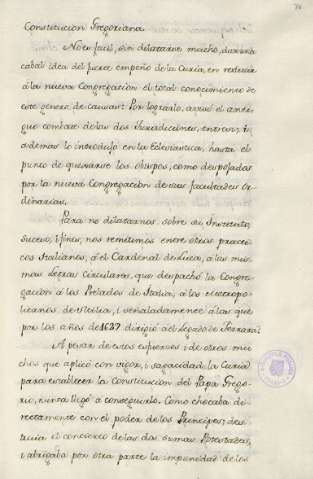 Constitucion Gregoriana.
No es facil, sin dilatarse mucho, dar una
cabal idea del fuerte empeño de la Curia, en restituir
a la nueva Congregacion el total conocimiento de
este genero de causas: Por lograrlo, avivó el anti-
guo combate de las dos Jurisdicciones, entre sí, i
ademas lo introdujo en la Eclesiastica, hasta el
punto de quejarse los obispos, como despojados
por la nueva Congregacion de sus facultades or-
dinarias.
Para no dilatarnos, sobre su
suceso, i fines, nos remitimos entre otros practi-
cos Italianos, á el Cardenal de Luca, á las mis-
mas Letras Circulares, que despachó la Congre-
gacion á los Prelados de Italia, á los Metropo-
litanos de Sicilia, i señaladamente á las que
por los años de 1637 dirigió á el Legado de Ferrara.
A pesar de estos esfuerzos i de otros mu-
chos que aplicó con vigor, i sagacidad la Curia
para establecer la Constitucion del Papa Grego-
rio, nunca llegó a conseguirlo. Como chocaba di-
rectamente con el poder de los Principes; des-
truia el concierto de las dos sumas Potestades,
i abrigaba por otra parte la impunidad de los